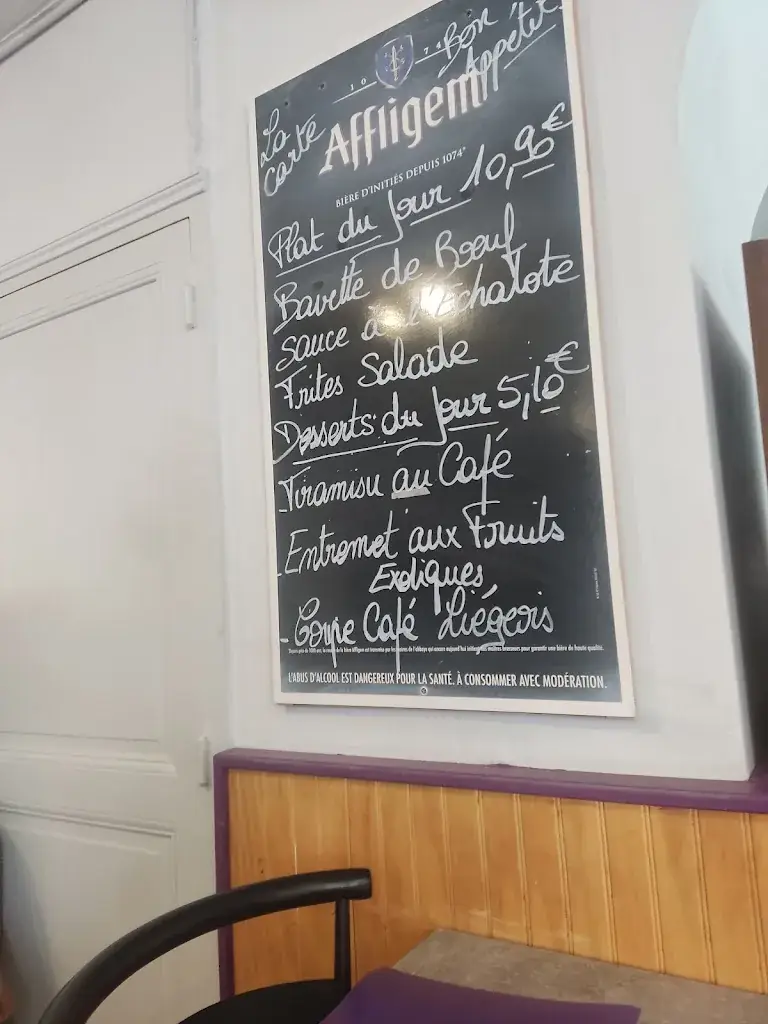 La carte
Bon Appétit
1074
Affligem
BIÈRE D'INITIÉS DEPUIS 1074*
Plat du Jour 10,90€
Bavette de Bœuf
Sauce à l'Echalote
Frites Salade
Desserts du Jour 5,10€
- Tiramisu au Café
- Entremet aux Fruits
Exotiques
- Coupe Café Liégeois
L'ABUS D'ALCOOL EST DANGEREUX POUR LA SANTÉ. À CONSOMMER AVEC MODÉRATION.